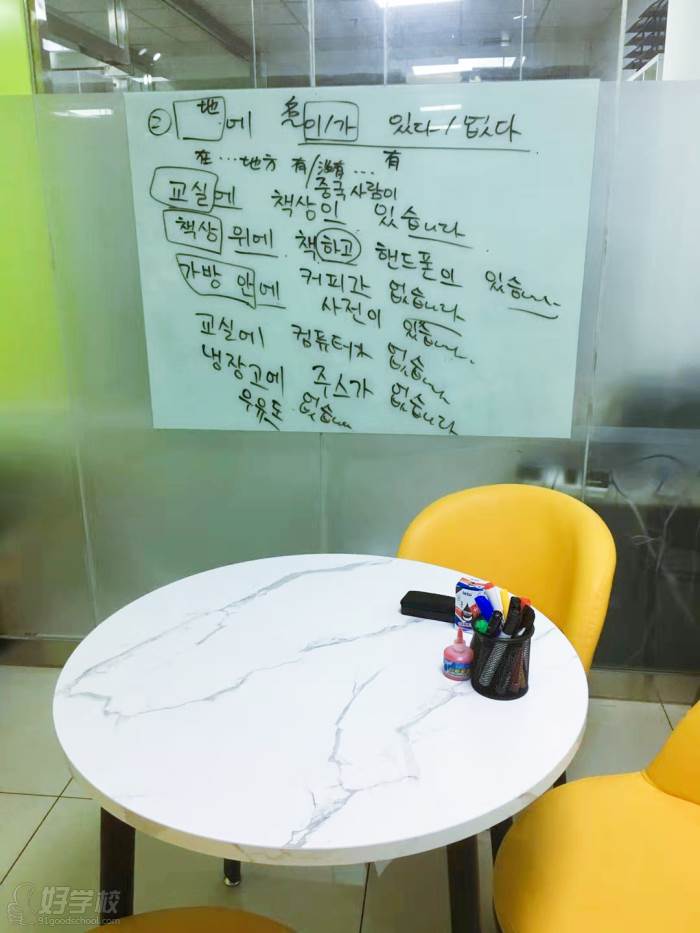 ② 地 에 이/가 있다/없다
在…地方 有/没有… 有
중국사람이
교실에 책상이 있습니다
책상 위에 책하고 핸드폰의 있습니다
가방 안에 커피가 없습니다
사전이 있습니다.
교실에 컴퓨터가 없습
냉장고에 주스가 없습니다
우유도 없습
好学校
91goodschool.com